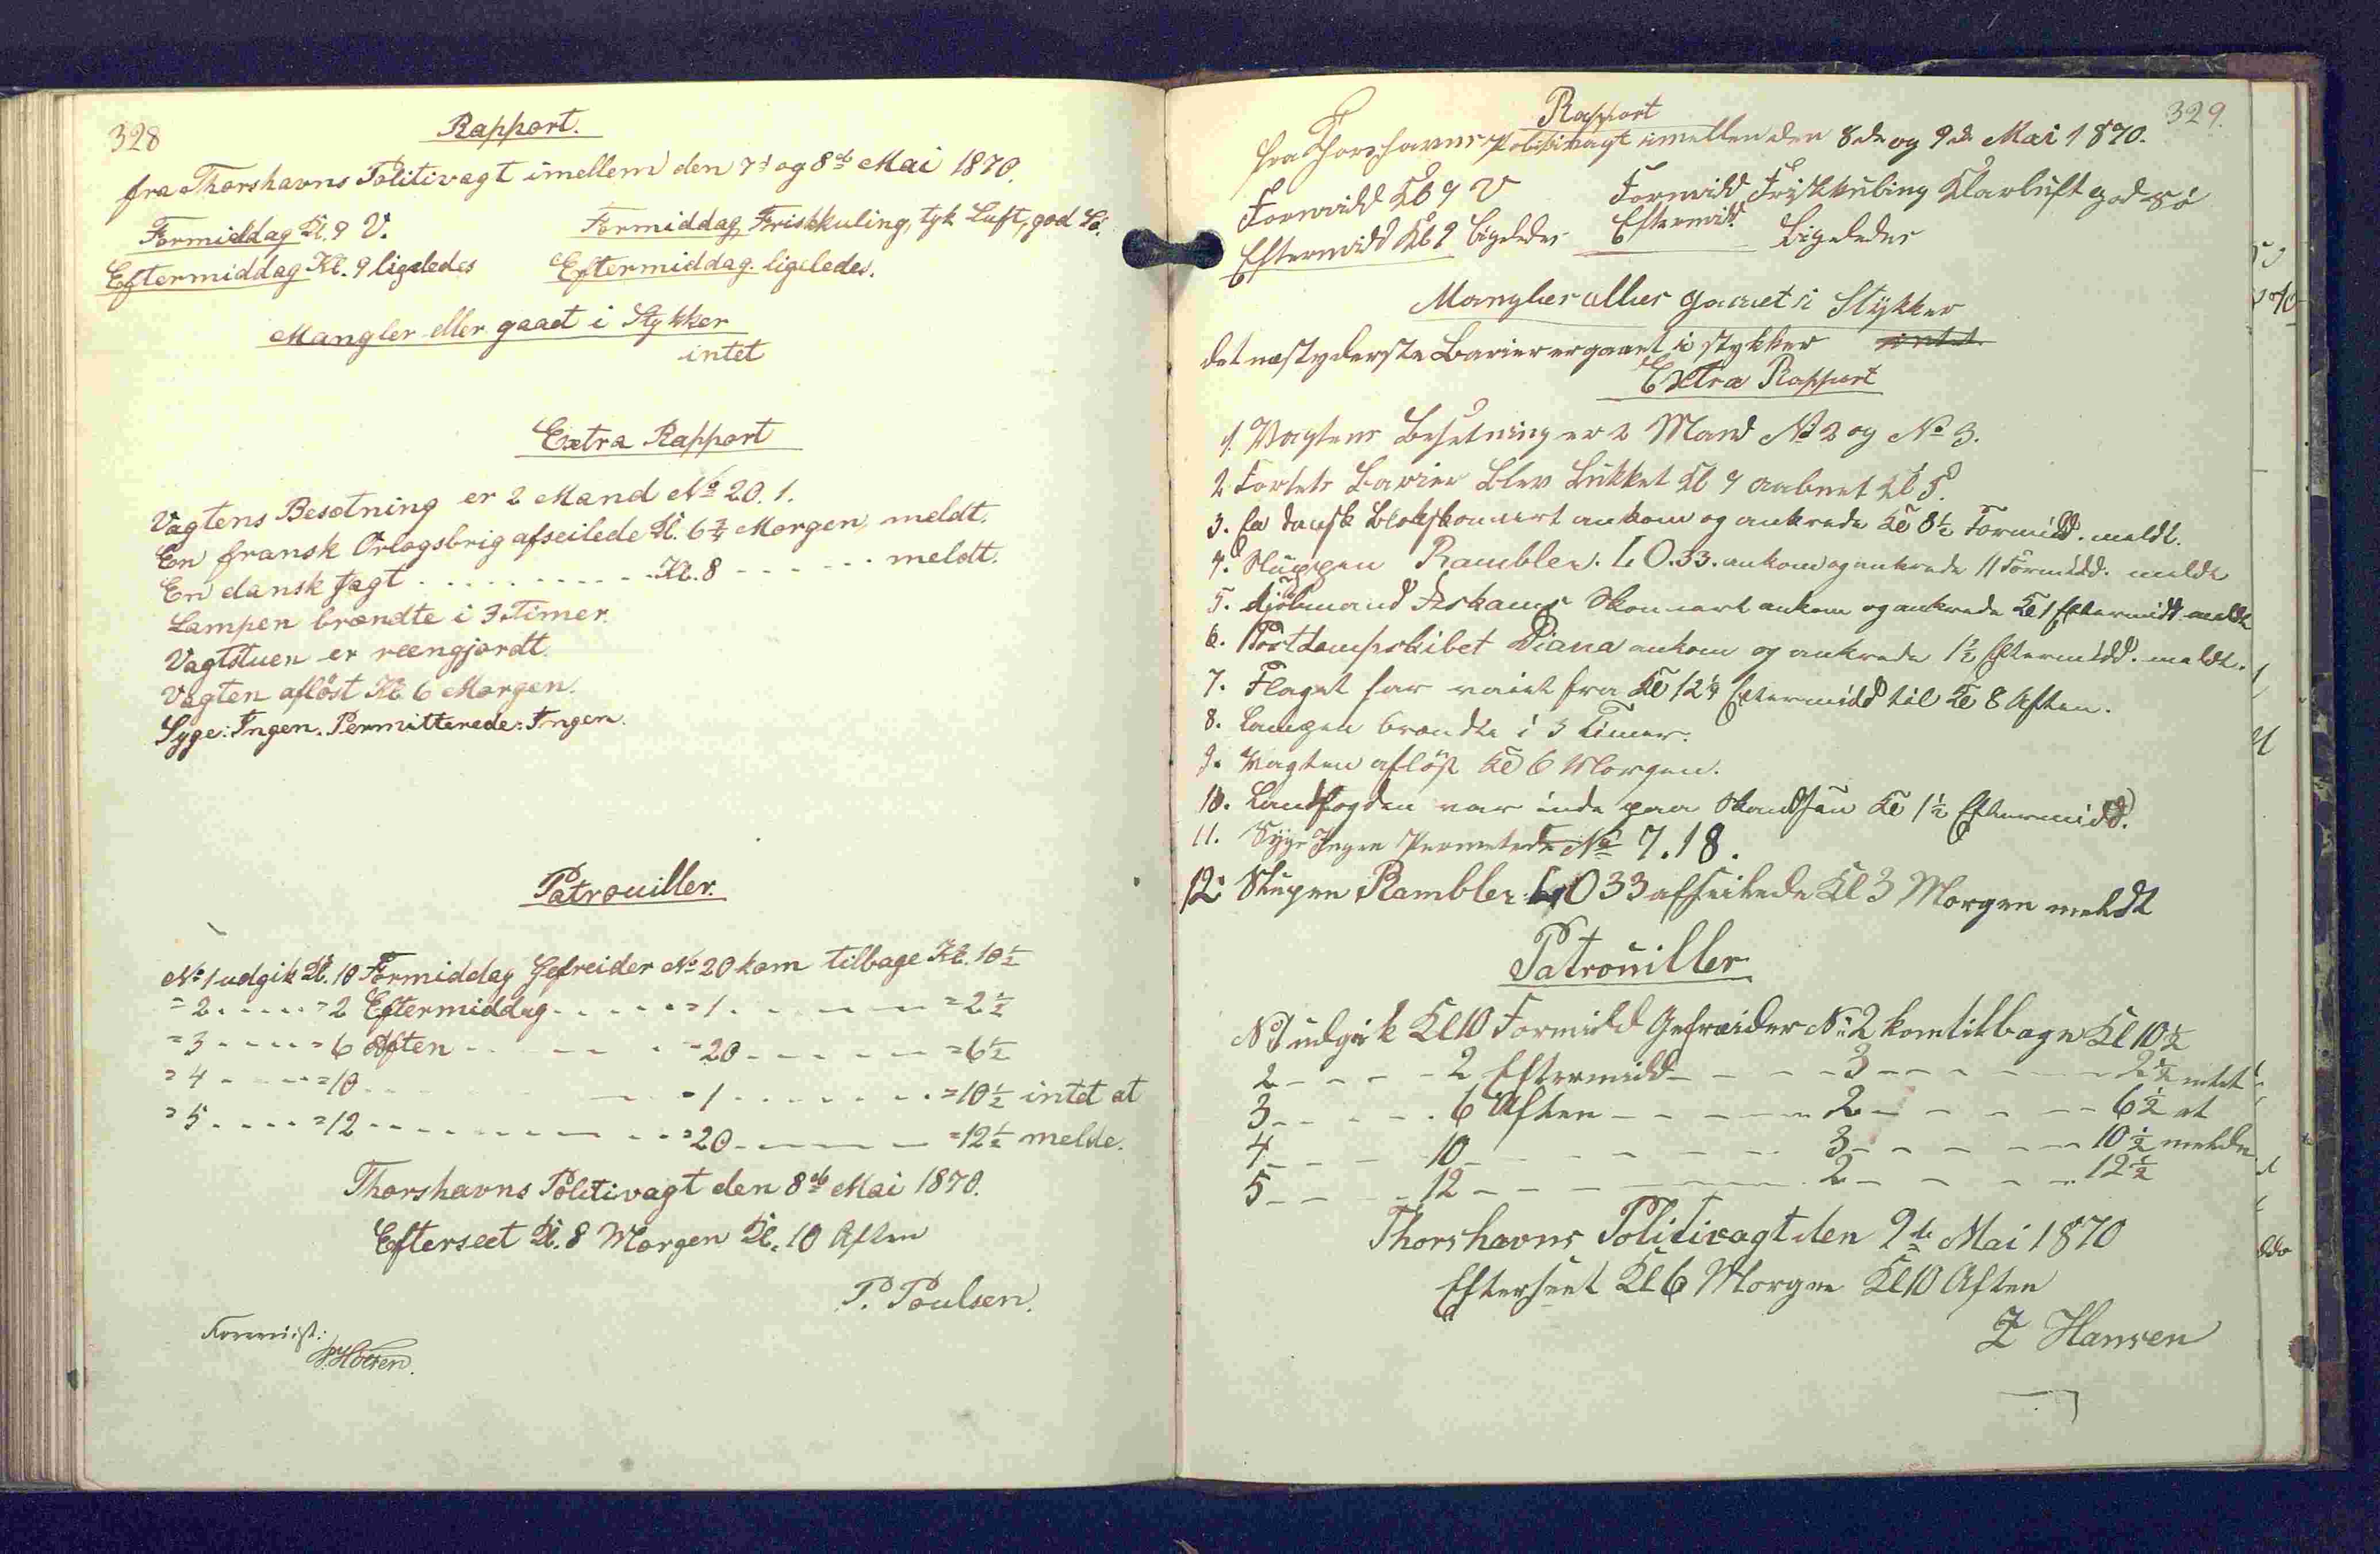 328
Rapport.
fra Thorshavns Politivagt imellem den 7d og 8de Mai 1870.
Formiddag Kl. 9 V. Formiddag Friskkuling, tyk Luft, god Sö.
Eftermiddag Kl. 9 ligeledes Eftermiddag. ligeledes.
Mangler eller gaaet i Stykker
intet
Extra Rapport
Vagtens Besætning er 2 Mand No 20. 1.
En fransk Orlogsbrig afseilede Kl. 6 3/4 Morgen, meldt.
En dansk Jagt . . . . . . . . . . Kl. 8 - - - - - - meldt.
Lampen brændte i 3 Timer.
Vagtstuen er reengjordt.
Vagten aflöst Kl. 6 Morgen.
Syge: Ingen. Permitterede: Ingen.
Patrouiller.
No 1 udgik Kl. 10 Formiddag Gefreider No 20 kom tilbage Kl. 10 1/2
= 2 . . . . . = 2 Eftermiddag - - - - - = 1 . - - - - - = 2 1/2
= 3 - - - - = 6 Aften - - - - - = 20 - - - - - = 6 1/2
= 4 - - - - = 10 - - - - - = 1 - - - - - = 10 1/2 intet at
= 5 - - - - = 12 - - - - - = 20 - - - - - = 12 1/2 melde.
Thorshavns Politivagt den 8de Mai 1870.
Efterseet Kl. 8 Morgen Kl. 10 Aften
P. Poulsen.
Forevist:
329.
Rapport
fra Thorshavns Politivagt imellem den 8de og 9de Mai 1870.
Formidd Kl 9 V Formidd Friskkuling Klarluft god Sö
Eftermidd Kl 9 ligeledes Eftermidd. Ligeledes
Mangler eller gaaet i Stykker
det næstyderste Barier er gaaet i stykker intet.
Extra Rapport
1. Vagtens Besetning er 2 Mand No 2 og No 3.
2 Fortets Barier blev Lukket Kl 9 aabnet Kl 5.
3. En dansk Slobskonnert ankom og ankrede Kl 8 1/2 Formidd. meldt.
4. Sluppen Rambler. L O. 33. ankom og ankrede 11 Formidd. meldt
5. Kjöbmand Skonnert ankom og ankrede Kl 1 Eftermidd meldt
6. Postdampskibet Diana ankom og ankrede 1 1/2 Eftermidd. meldt.
7. Flaget har vaiet fra Kl 12 1/4 Eftermidd til Kl 8 Aften.
8. Lampen brændte i 3 Timer.
9. Vagten aflöst Kl 6 Morgen.
10. Landfogden var inde paa Skandsen Kl 1 1/2 Eftermidd.
11. Syge Ingen No 7. 18.
12. Slupen Rambler LO 33 afseilede Kl 3 Morgen meldt
Patrouiller
No 1 udgik Kl 10 Formidd Gefreider No 2 kom tilbage Kl 10 1/2
2 - - - - 2 Eftermidd - - - - 3 - - - - - 2 1/2 intet
3 - - - - 6 Aften - - - - - 2 - - - - - 6 1/2 at
4 - - - 10 - - - - - - 3 - - - - - 10 1/2 melde
5 - - - 12 - - - - - - 2 - - - - - 12 1/2
Thorshavns Politivagt den 9de Mai 1870
Efterseet Kl 6 Morgen Kl 10 Aften
Z Hansen